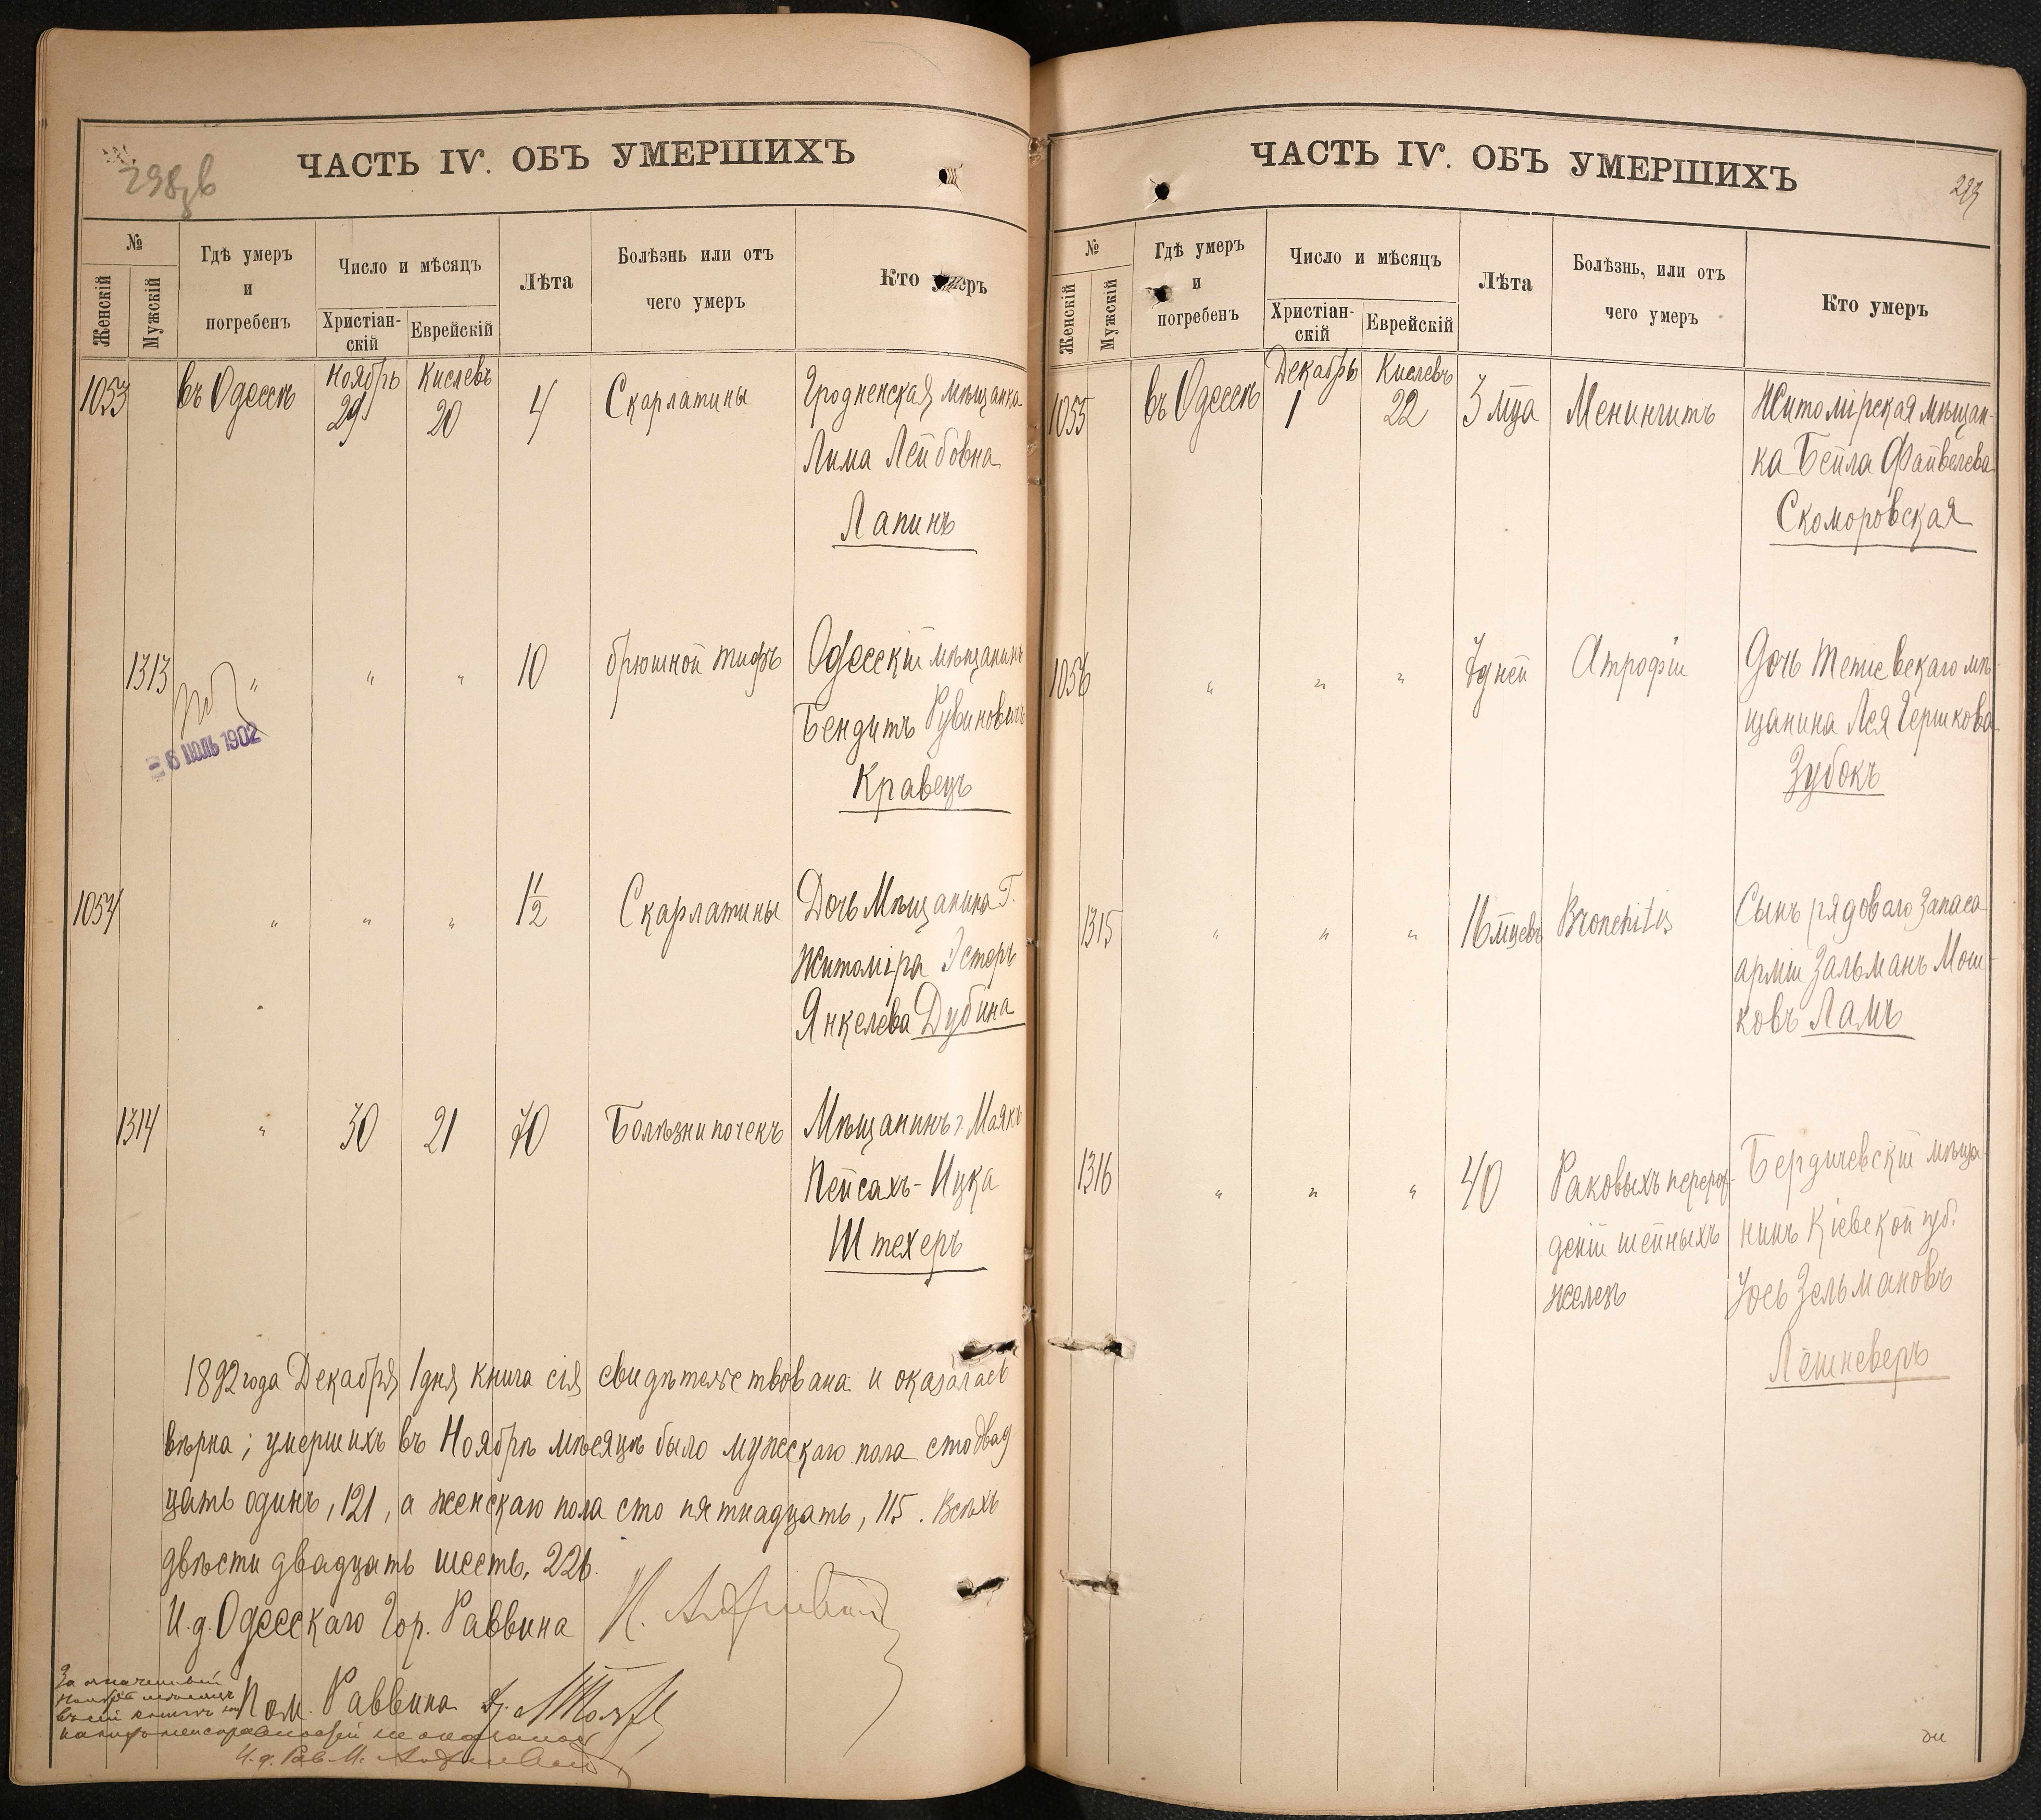 298 зв
ЧАСТЬ IV. ОБЪ УМЕРШИХЪ
№
Женскій
Мужскій
Гдѣ умеръ
и
погребенъ
Число и мѣсяцъ
Христіан-
скій
Еврейскій
Лѣта
Болѣзнь или отъ
чего умеръ
Кто умеръ
1053 въ Одессѣ Ноябрь 29 Кислевъ 20 4 Скарлатины Гродненская мѣщанка
Лима Лейбовна
Лапинъ
1313 " " " 10 брюшной тифъ Одесскій мѣщанинъ
Бендитъ Рувиновичъ
Кравецъ
6 ІЮЛЬ 1902
1054 " " " 1½ Скарлатины Дочь Мѣщанина г.
Житоміра Эстеръ
Янкелева Дубина
1314 " 30 21 70 Болѣзни почекъ Мѣщанинъ г. Маякъ
Пейсахъ-Ицка
Штехеръ
1892 года Декабря 1 дня книга сія свидѣтельствована и оказалась
вѣрна; умершихъ въ Ноябрѣ мѣсяцѣ было мужескаго пола сто двад
цать одинъ, 121, а женскаго пола сто пятнадцать, 115. Всѣхъ
двѣсти двадцать шесть, 226.
И.д. Одесскаго Гор. Раввина
Пом. Раввина
ЧАСТЬ IV. ОБЪ УМЕРШИХЪ
299
№
Женскій
Мужскій
Гдѣ умеръ
и
погребенъ
Число и мѣсяцъ
Христіан-
скій
Еврейскій
Лѣта
Болѣзнь, или отъ
чего умеръ
Кто умеръ
1055 въ Одессѣ Декабрь 1 Кислевъ 22 3 мца Менингитъ Житомірская мѣщан-
ка Бейла Файвелева
Скоморовская
1056 " " " 7 дней Атрофіи Дочь Тетіевскаго мѣ-
щанина Лея Гершкова
Зубокъ
1315 " " " 16 мцевъ Bronchitis Сынъ рядоваго запаса
арміи Зальманъ Мош-
ковъ Ламъ
1316 " " " 40 Раковыхъ перерож- Бердичевскій мѣща-
деній шейныхъ нинъ Кіевской губ.
железъ Іось Зельмановъ
Лешневеръ